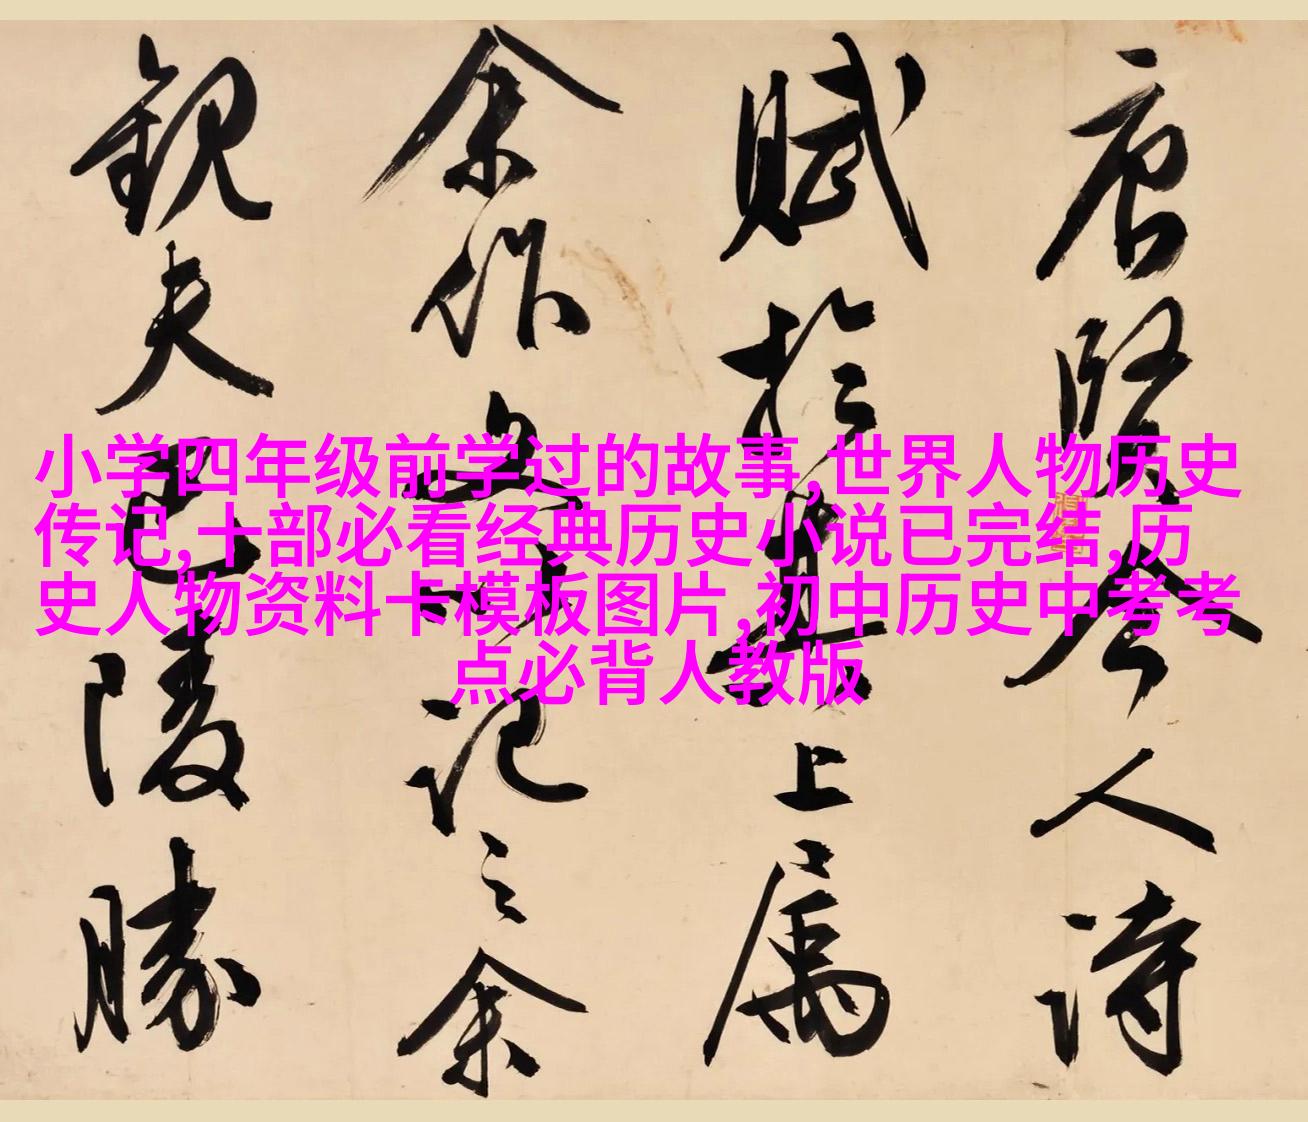 唐賢今人詩
賦於其上屬
余作文以記之余
觀夫巴陵勝
小学四年级前学过的故事,世界人物历史
传记,十部必看经典历史小说已完结,历
史人物资料卡模板图片,初中历史中考考
点必背人教版